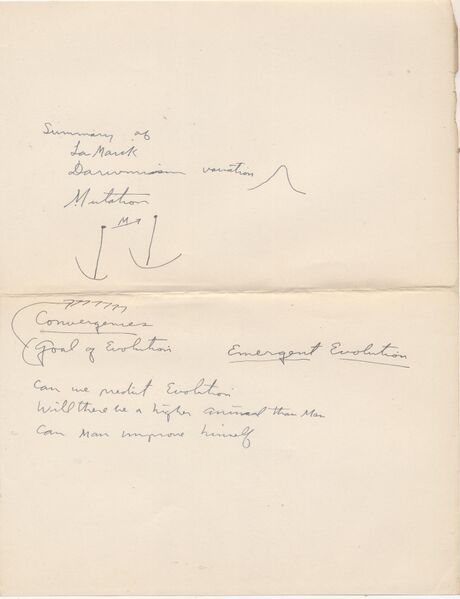 Summary of
La Marck
Darwinism variation
Mutation
M
Convergences
Goal of Evolution
Emergent Evolution
Can we predict Evolution
Will there be a higher animal than Man
Can Man improve himself